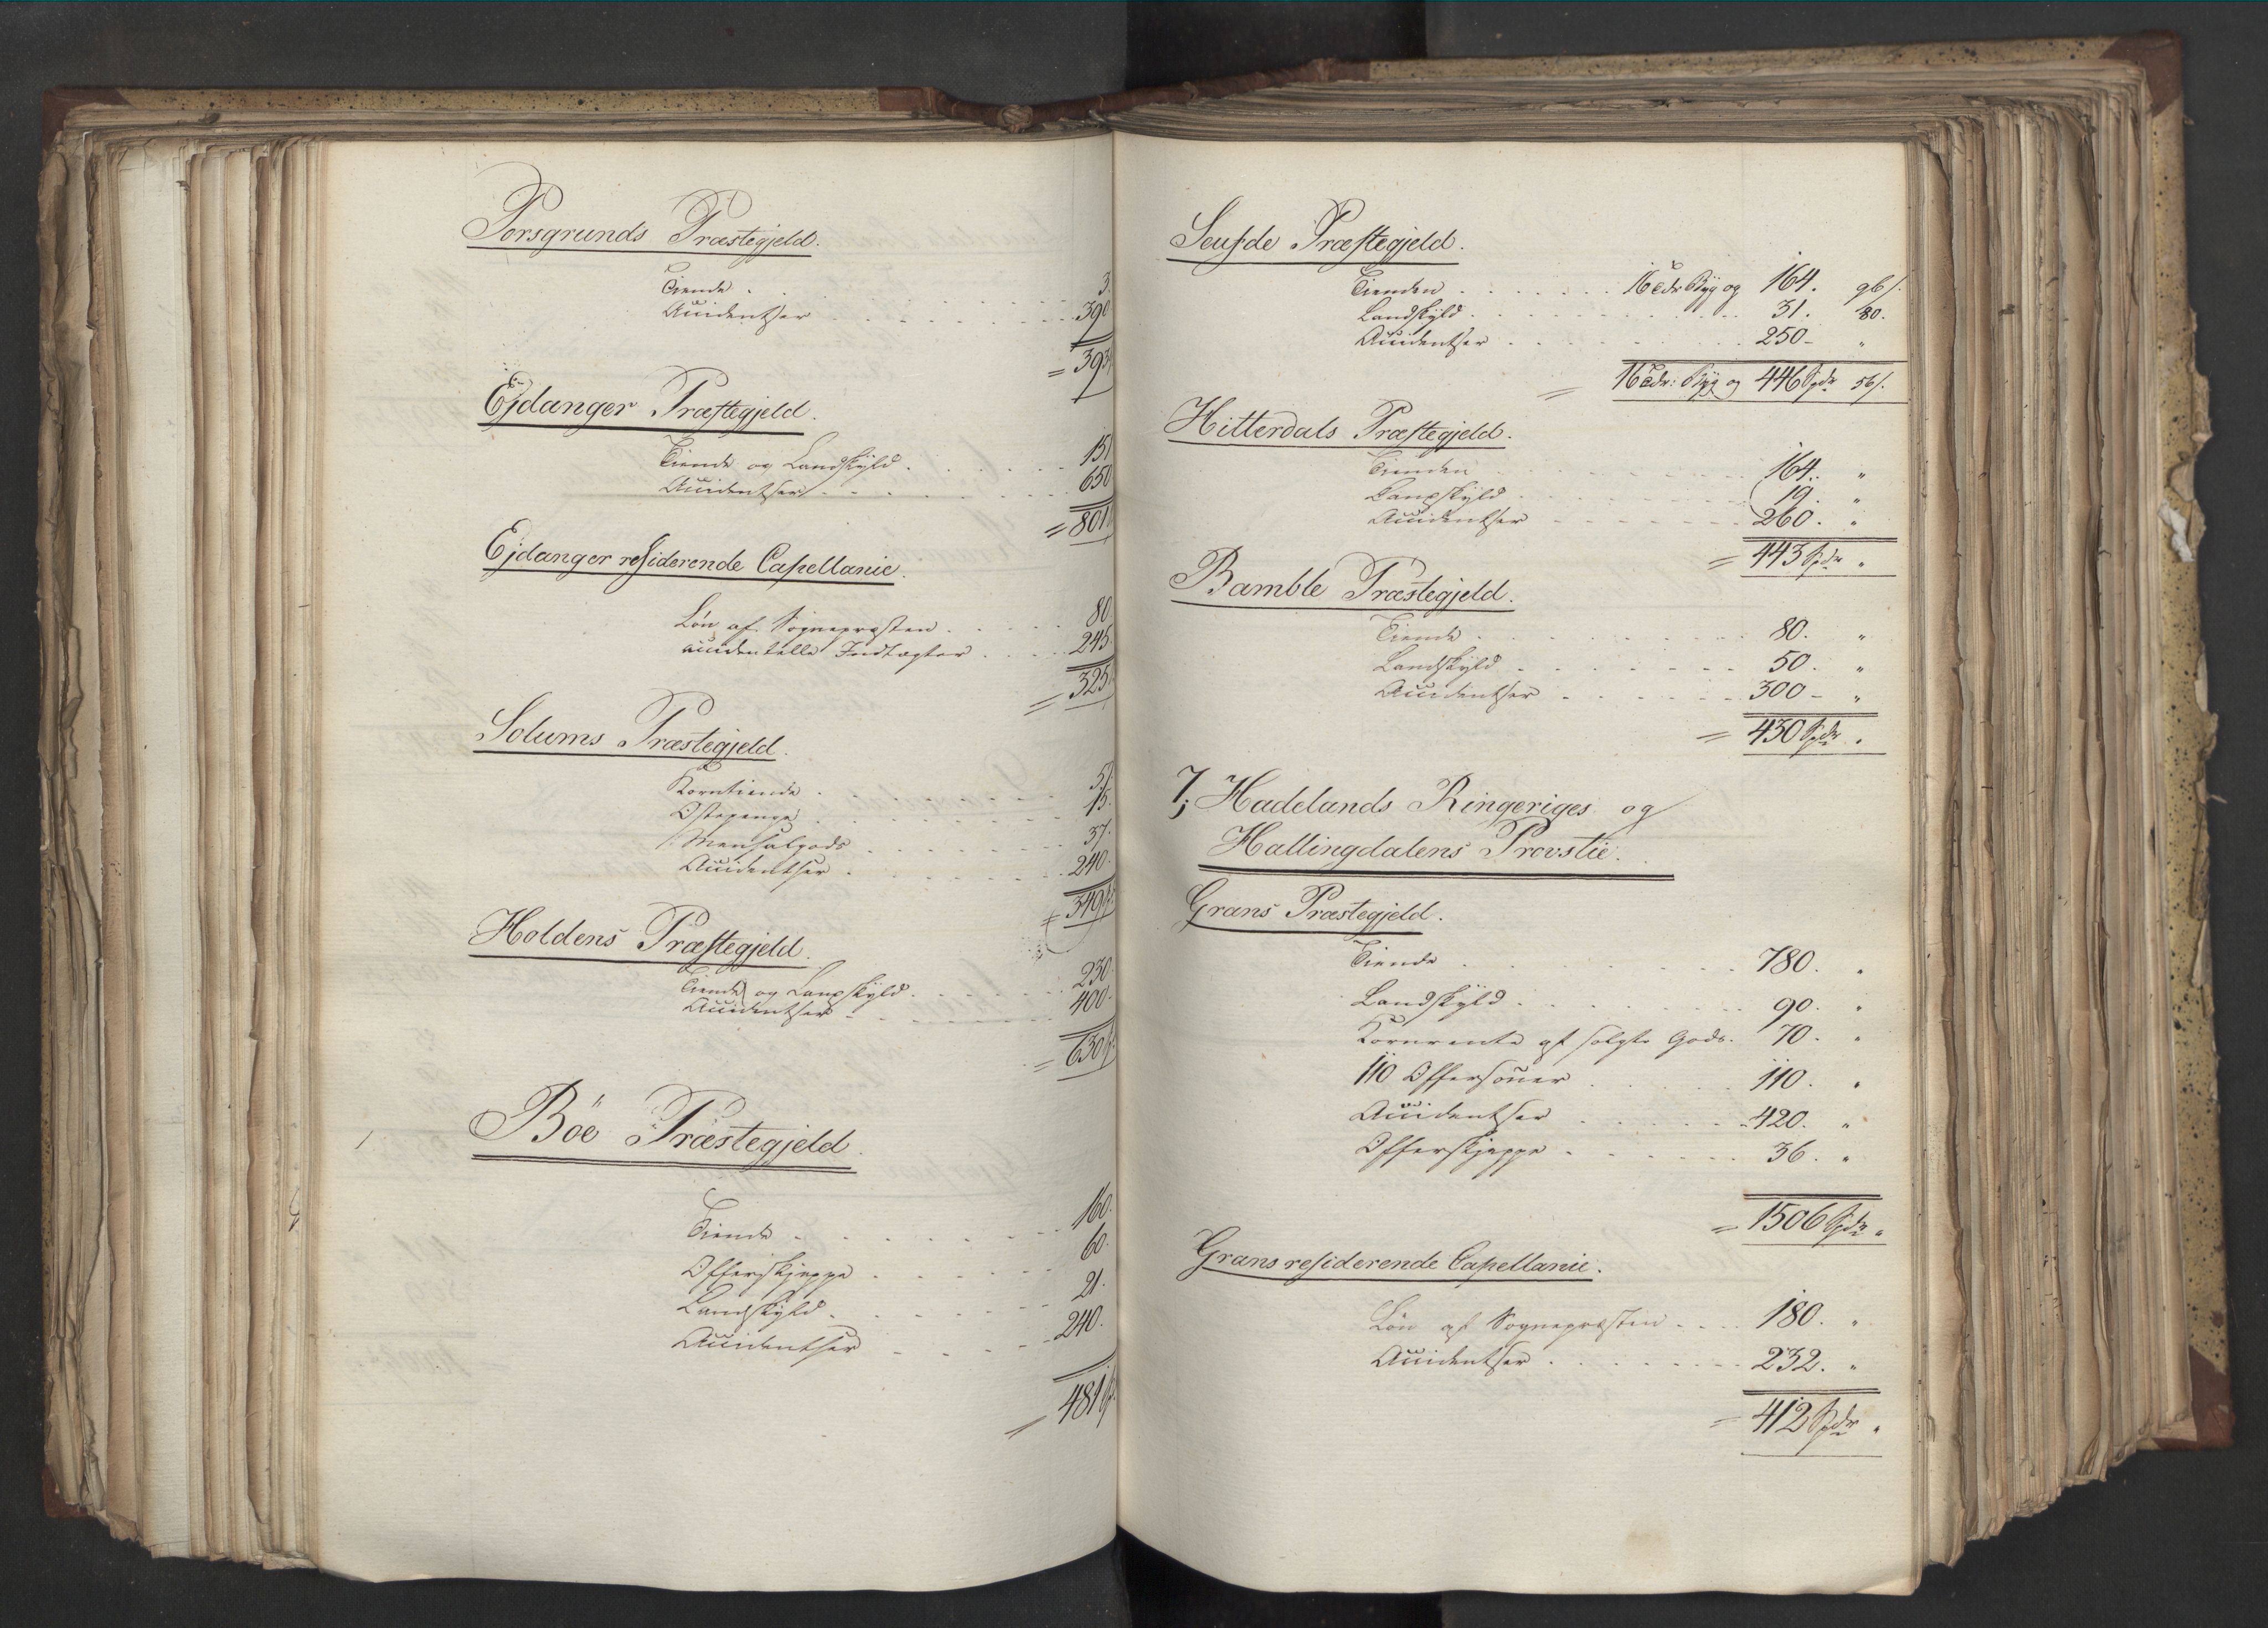 Porsgrunds Præstegjeld.
Tiende . 3.
Accidentser 390
= 393
Ejdanger Præstegjeld.
Tiende og Landskyld . 151
Accidentser 650
= 801
Ejdanger residerende Capellanie.
Løn af Sognepræsten . 80.
accidentelle Indtægter . 245.
= 325
Solums Præstegjeld.
Korntiende .
Ostepenge . 15.
Mensalgods 37.
Accidentser . 240.
= 349
Holdens Præstegjeld.
Tiende og Landskyld . 230.
Accidentser 400.
= 630
Böe Præstegjeld.
Tiende . 160.
Offerskjeppe . 60.
Landskyld . 21.
Accidentser 240.
= 481
Seufde Præstegjeld.
Tienden . 16 Tdr Byg og 164. 96 s.
Landskyld . 31. 80.
Accidentser 250 - "
= 16 Tdr: Byg og 446 Spdr 56 s.
Hitterdals Præstegjeld.
Tienden 164. "
Landskyld . 19. "
Accidentser 260. "
= 443 Spdr "
Bamble Præstegjeld.
Tiende . 80. "
Landskyld . 50. "
Accidentser 300 - "
= 430 Spdr "
7; Hadelands Ringeriges og
Hallingdalens Provstie.
Grans Præstegjeld.
Tiende . 780. "
Landskyld . 90. "
Kornrente af solgte Gods. 70. "
110 Offersöuer 110. "
Accidentser 420. "
Offerskjeppe . 36. "
= 1506 Spdr "
Grans residerende Capellanie.
Løn af Sognepræsten 180. "
Accidentser . 232. "
= 412 Spdr "